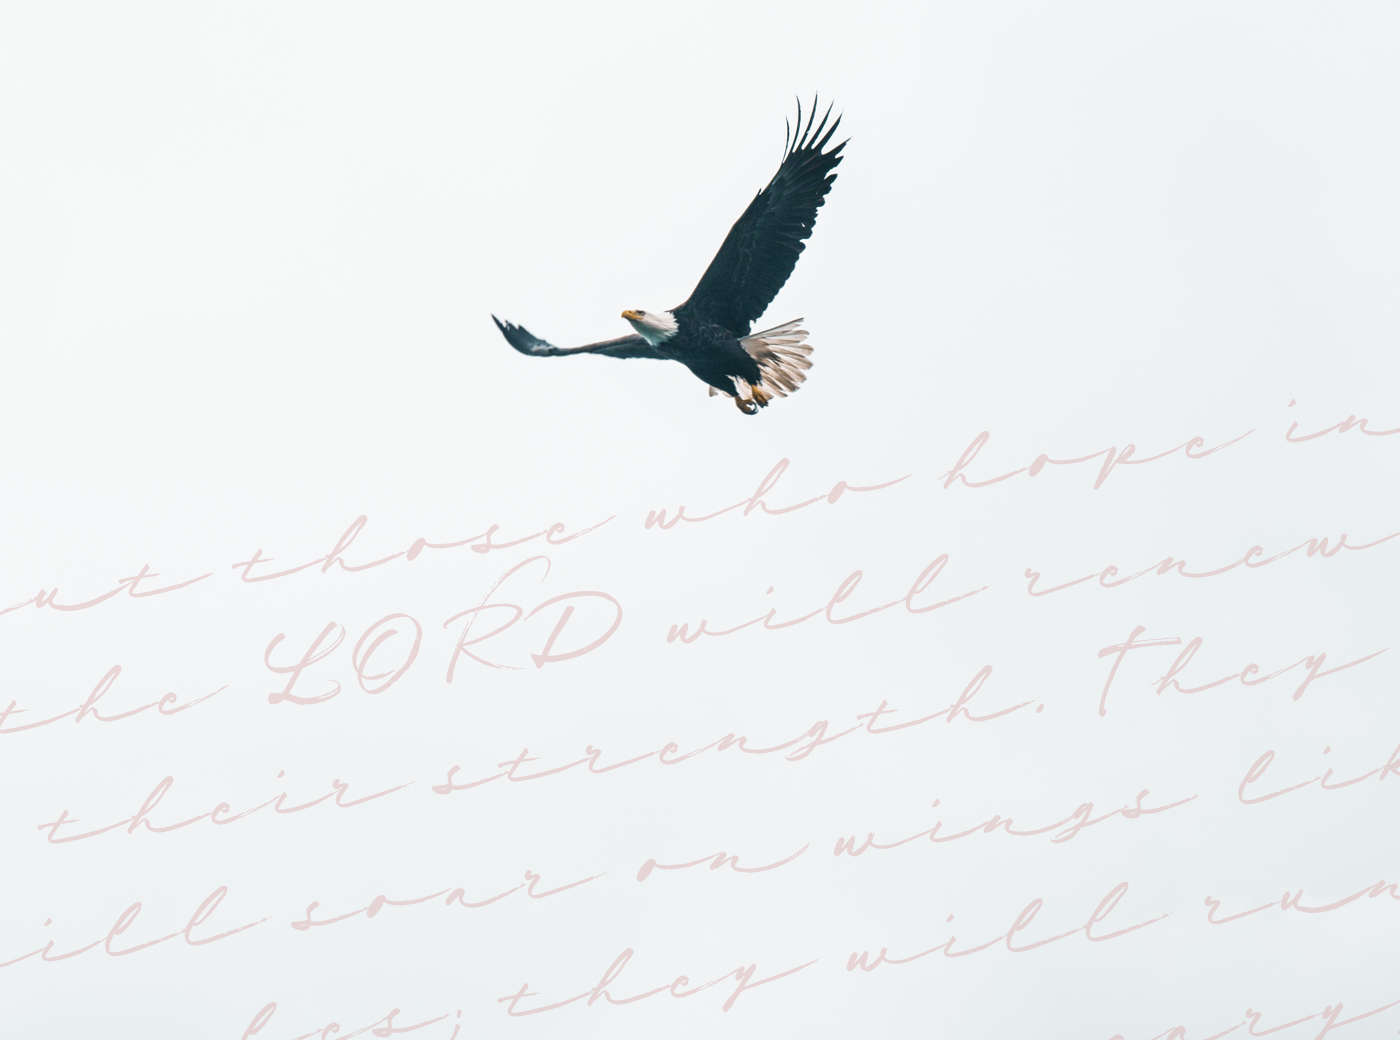 ut those who hope in
the LORD will renew
their strength. They
ill soar on wings lik
les; they will run
eary